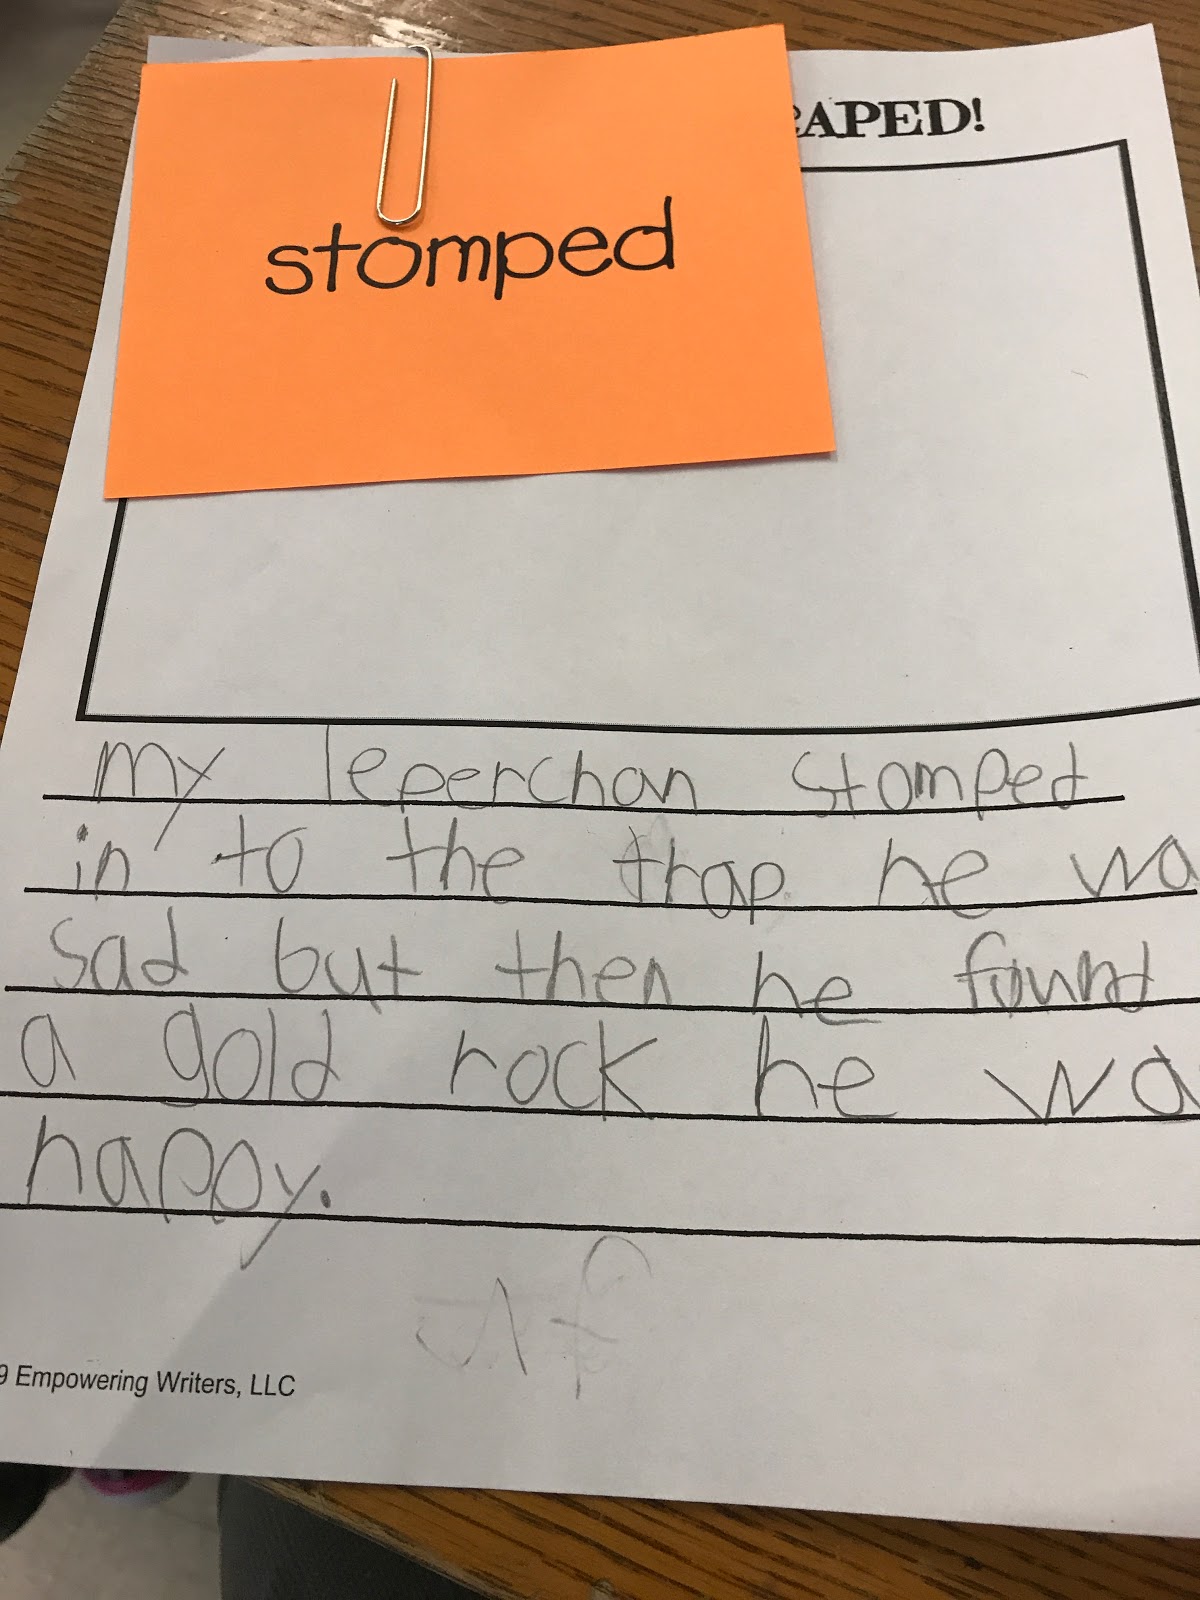 APED!
stomped
my leperchan stomped
in to the trap he wa
sad but then he found
a gold rock he wa
happy.
9 Empowering Writers, LLC